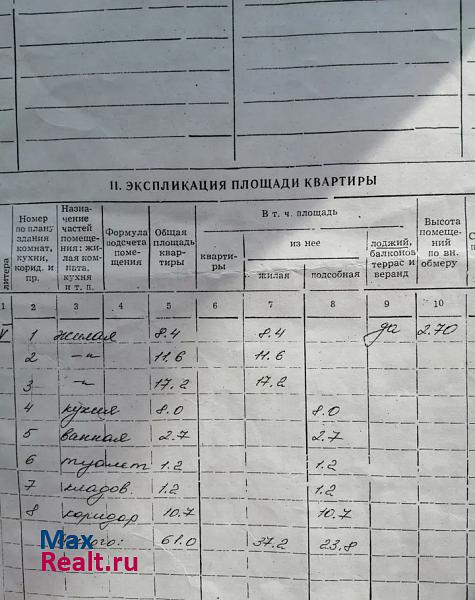 II. ЭКСПЛИКАЦИЯ ПЛОЩАДИ КВАРТИРЫ
литера
Номер по плану здания комнат, кухни, корид. и пр.
Назначение частей помещения: жилая комната, кухня и т. п.
Формула подсчета помещения
Общая площадь квартиры
В т. ч. площадь
квартиры
из нее
жилая
подсобная
лоджий, балконов террас и веранд
Высота помещений по вн. обмеру
1 2 3 4 5 6 7 8 9 10
1 жилая 8.4 8.4 да 2.70
2 -"- 11.6 11.6
3 -"- 17.2 17.2
4 кухня 8.0 8.0
5 ванная 2.7 2.7
6 туалет 1.2 1.2
7 кладов. 1.2 1.2
8 коридор 10.7 10.7
Итого: 61.0 37.2 23.8
Max
Realt.ru